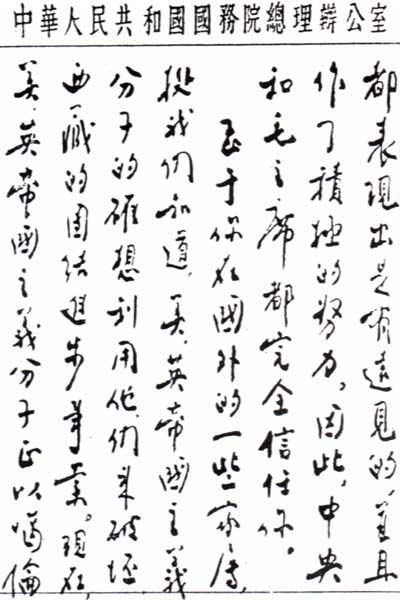 中華人民共和國國務院總理辦公室
都表現出是有遠見的,並且
作了積極的努力。因此,中央
和毛主席都完全信任你。
至于你在國外的一些家屬,
據我們知道,美、英帝國主義
分子的確想利用他們來破壞
西藏的團結進步事業。現在,
美、英帝國主義分子正以噶倫